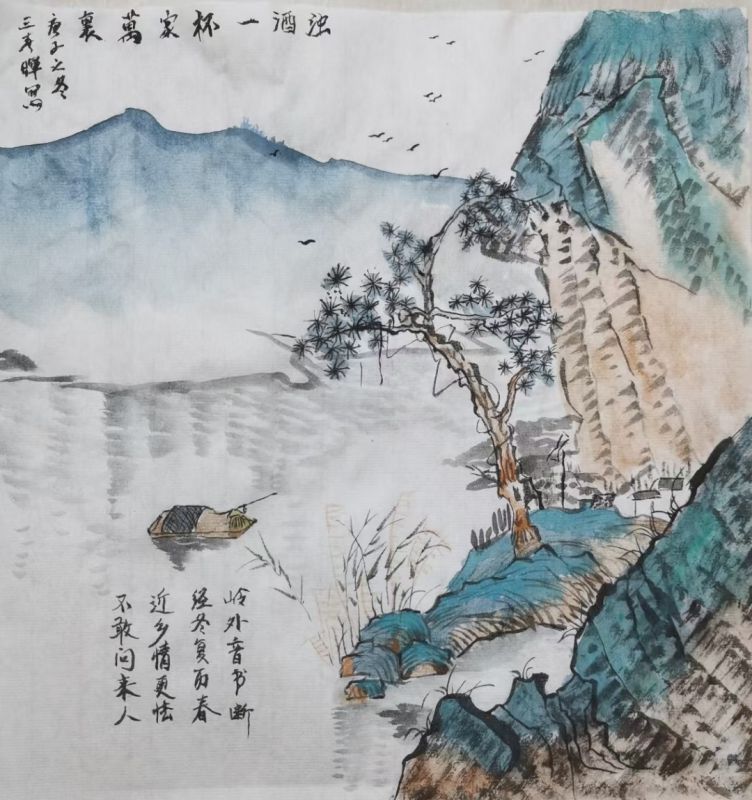 浊酒一杯家萬裏
庚子之冬
三暉
岭外音书断
经冬复历春
近乡情更怯
不敢问来人